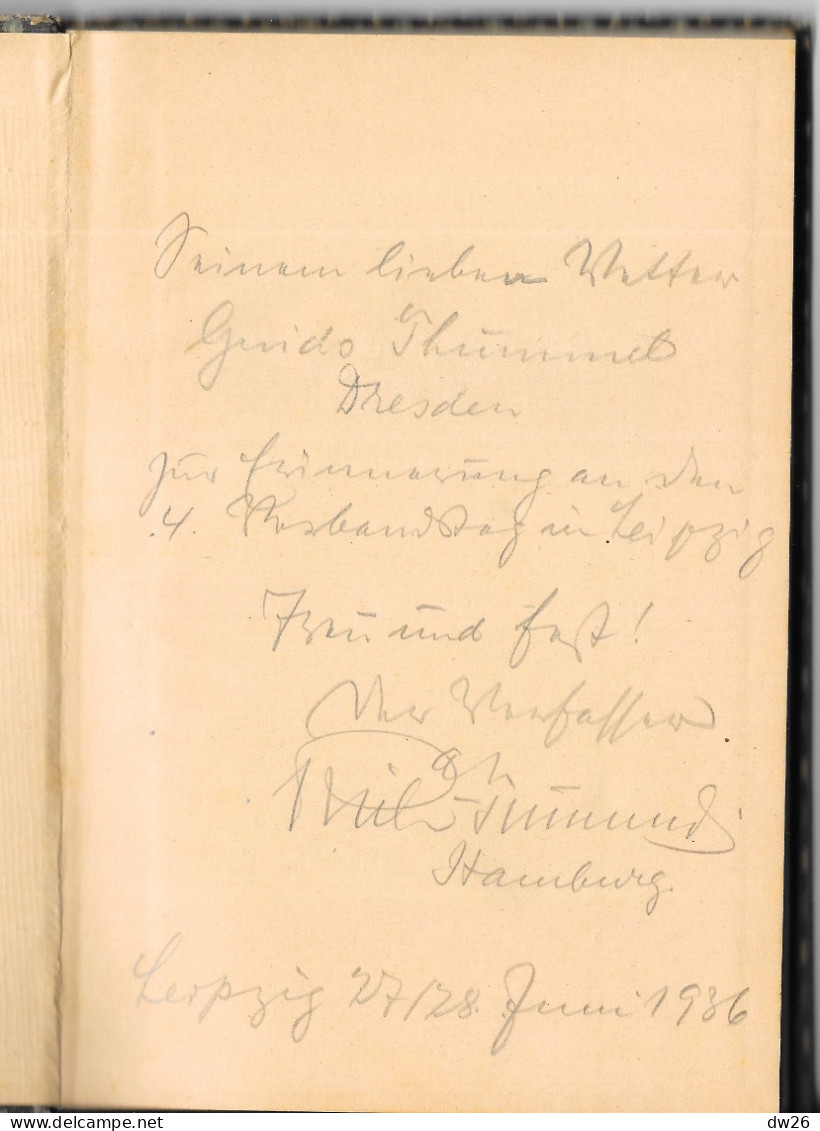 Seinem lieben Vetter
Guido Thümmel
Dresden
zur Erinnerung an den
4. Verbandstag in Leipzig
Treu und fest!
Der Verfasser
Hamburg.
Leipzig 27/28. Juni 1936
dw26